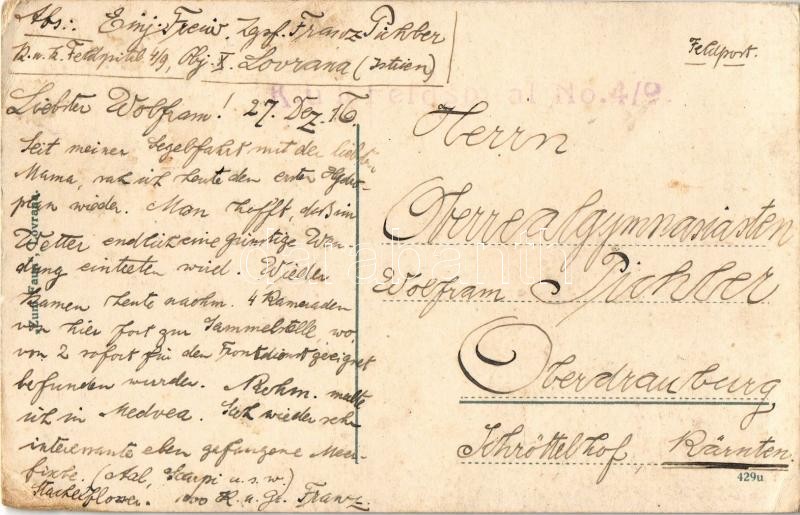 Abs.: Einj. Freiw. Zgsf. Franz Pichber
K. u. k. Feldspital 4/9, Obj. X. Lovrana (Istrien)
Feldpost.
K. u. k. Feldspital No. 4/9
Liebster Wolfram! 27. Dez. 16.
Seit meiner Segelfahrt mit der lieben
Mama, sah ich heute den ersten Hydro-
plan wieder. Man hofft, daß im
Wetter endlich eine günstige Wen-
dung eintreten wird. Wieder
kamen heute nachm. 4 Kameraden
von hier fort zur Sammelstelle, wo
von 2 sofort für den Frontdienst geeignet
befunden wurden. Nchm. malte
ich in Medvea. Sah wieder sehr
interessante eben gefangene Meer-
fische. (Aal, Scarpi u.s.w.)
1000 K. u. Gr. Franz
Herrn
Oberrealgymnasiasten
Wolfram Pichber
Oberdrauburg
Schröttelhof, Kärnten.
429u
"Zum Faun", Lovrana.
darabanth